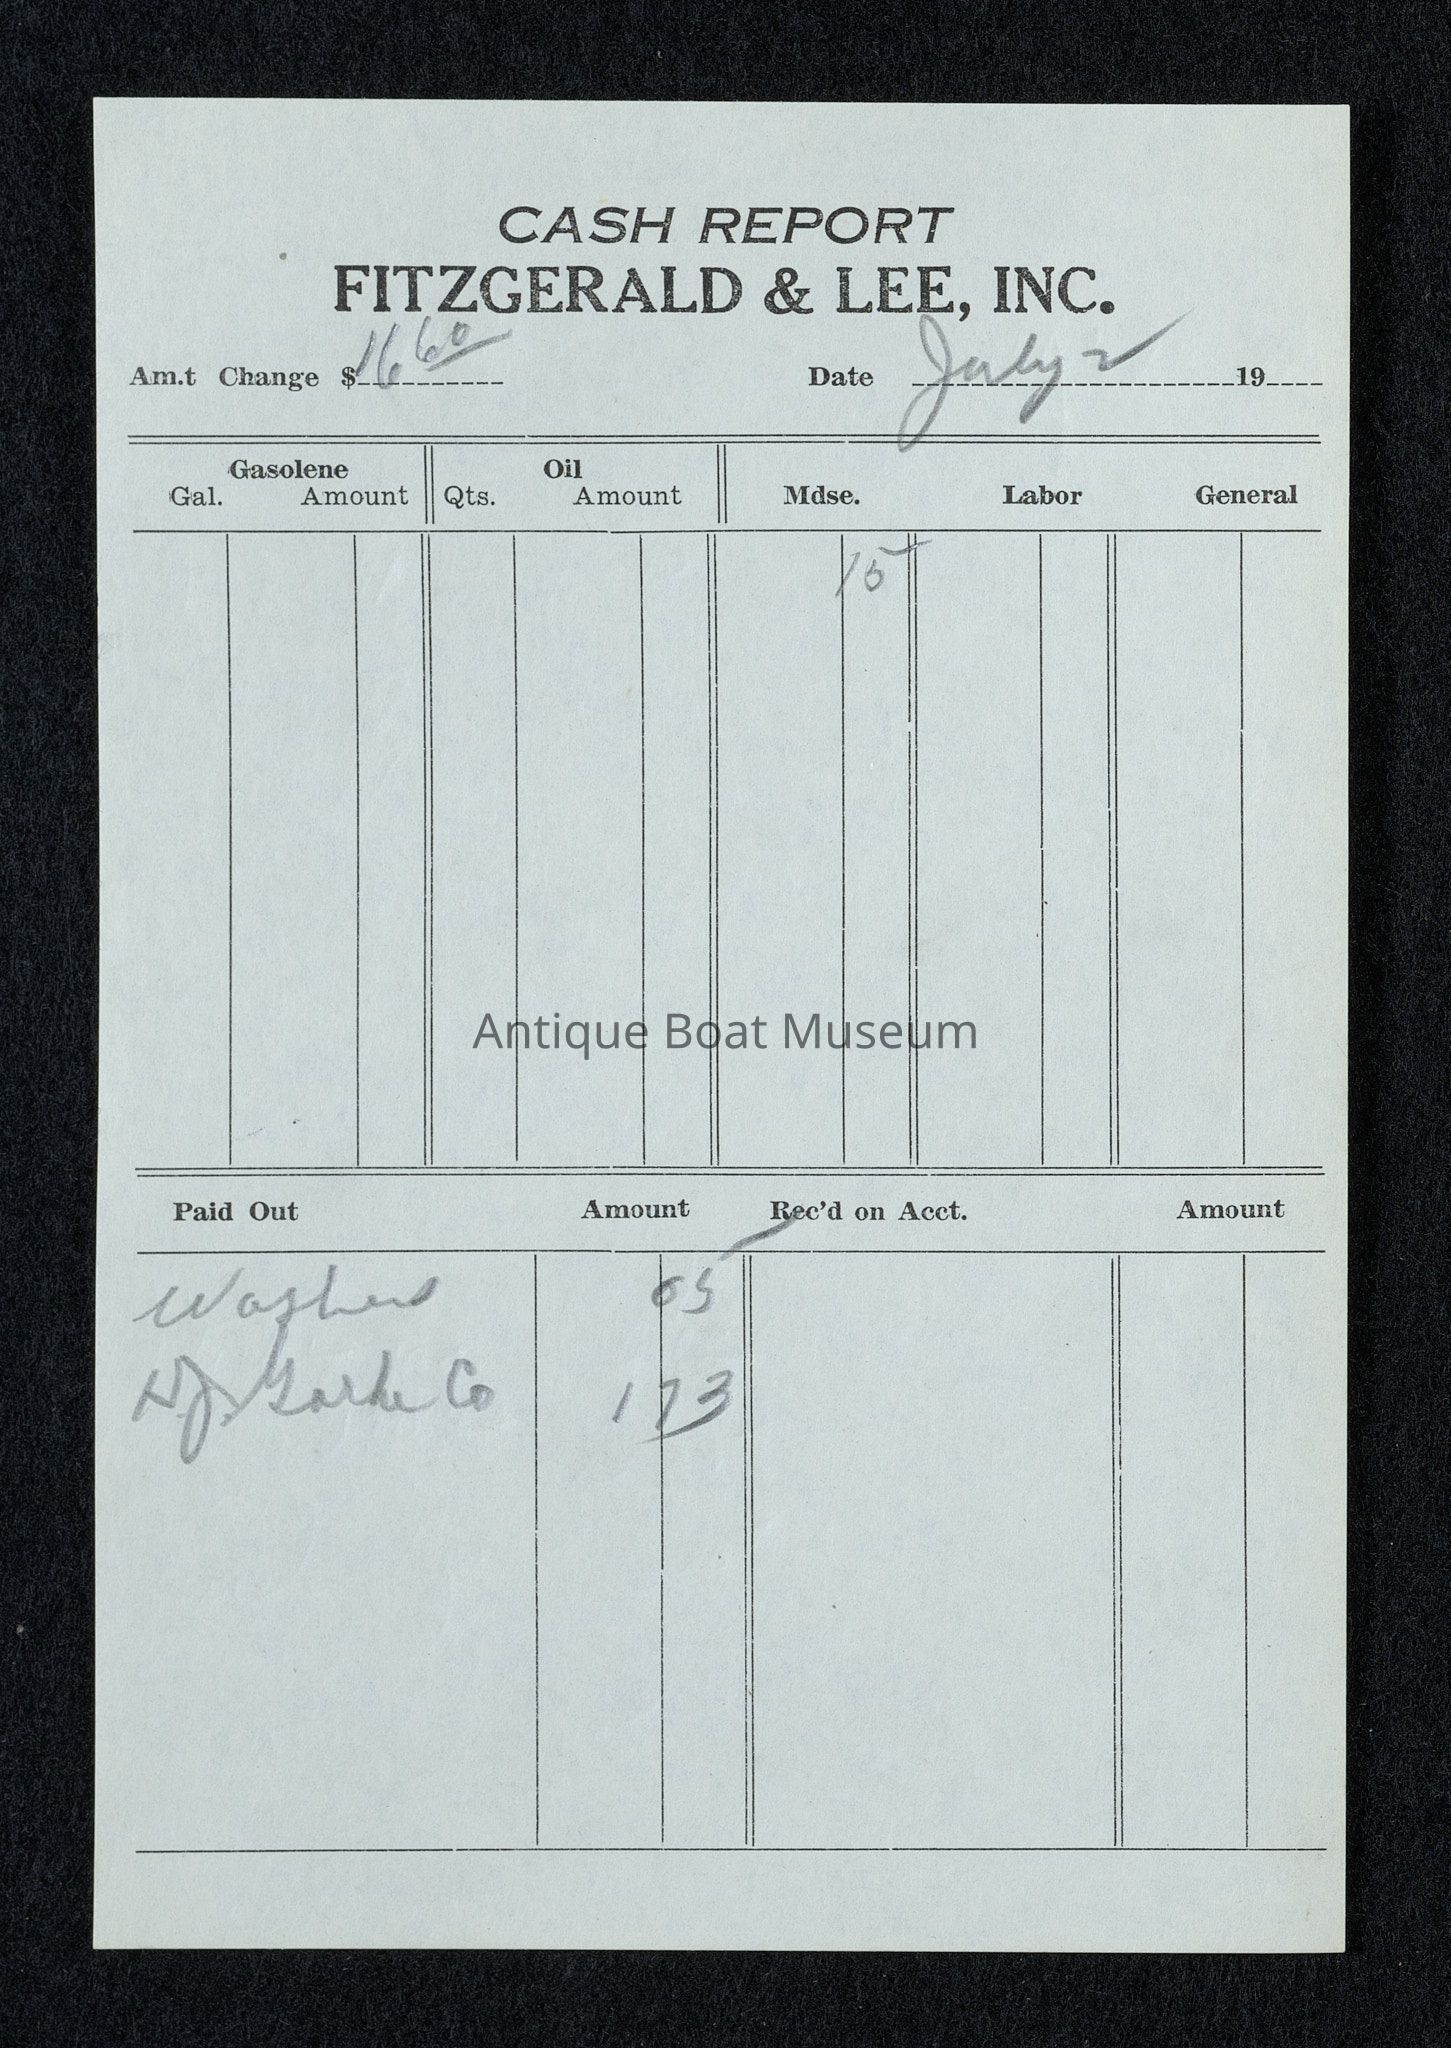 CASH REPORT
FITZGERALD & LEE, INC.
Am.t Change $ 16 60 Date July 2 19
Gasolene Oil
Gal. Amount Qts. Amount Mdse. Labor General
15
Antique Boat Museum
Paid Out Amount Rec'd on Acct. Amount
Washers 05
Co 1 73